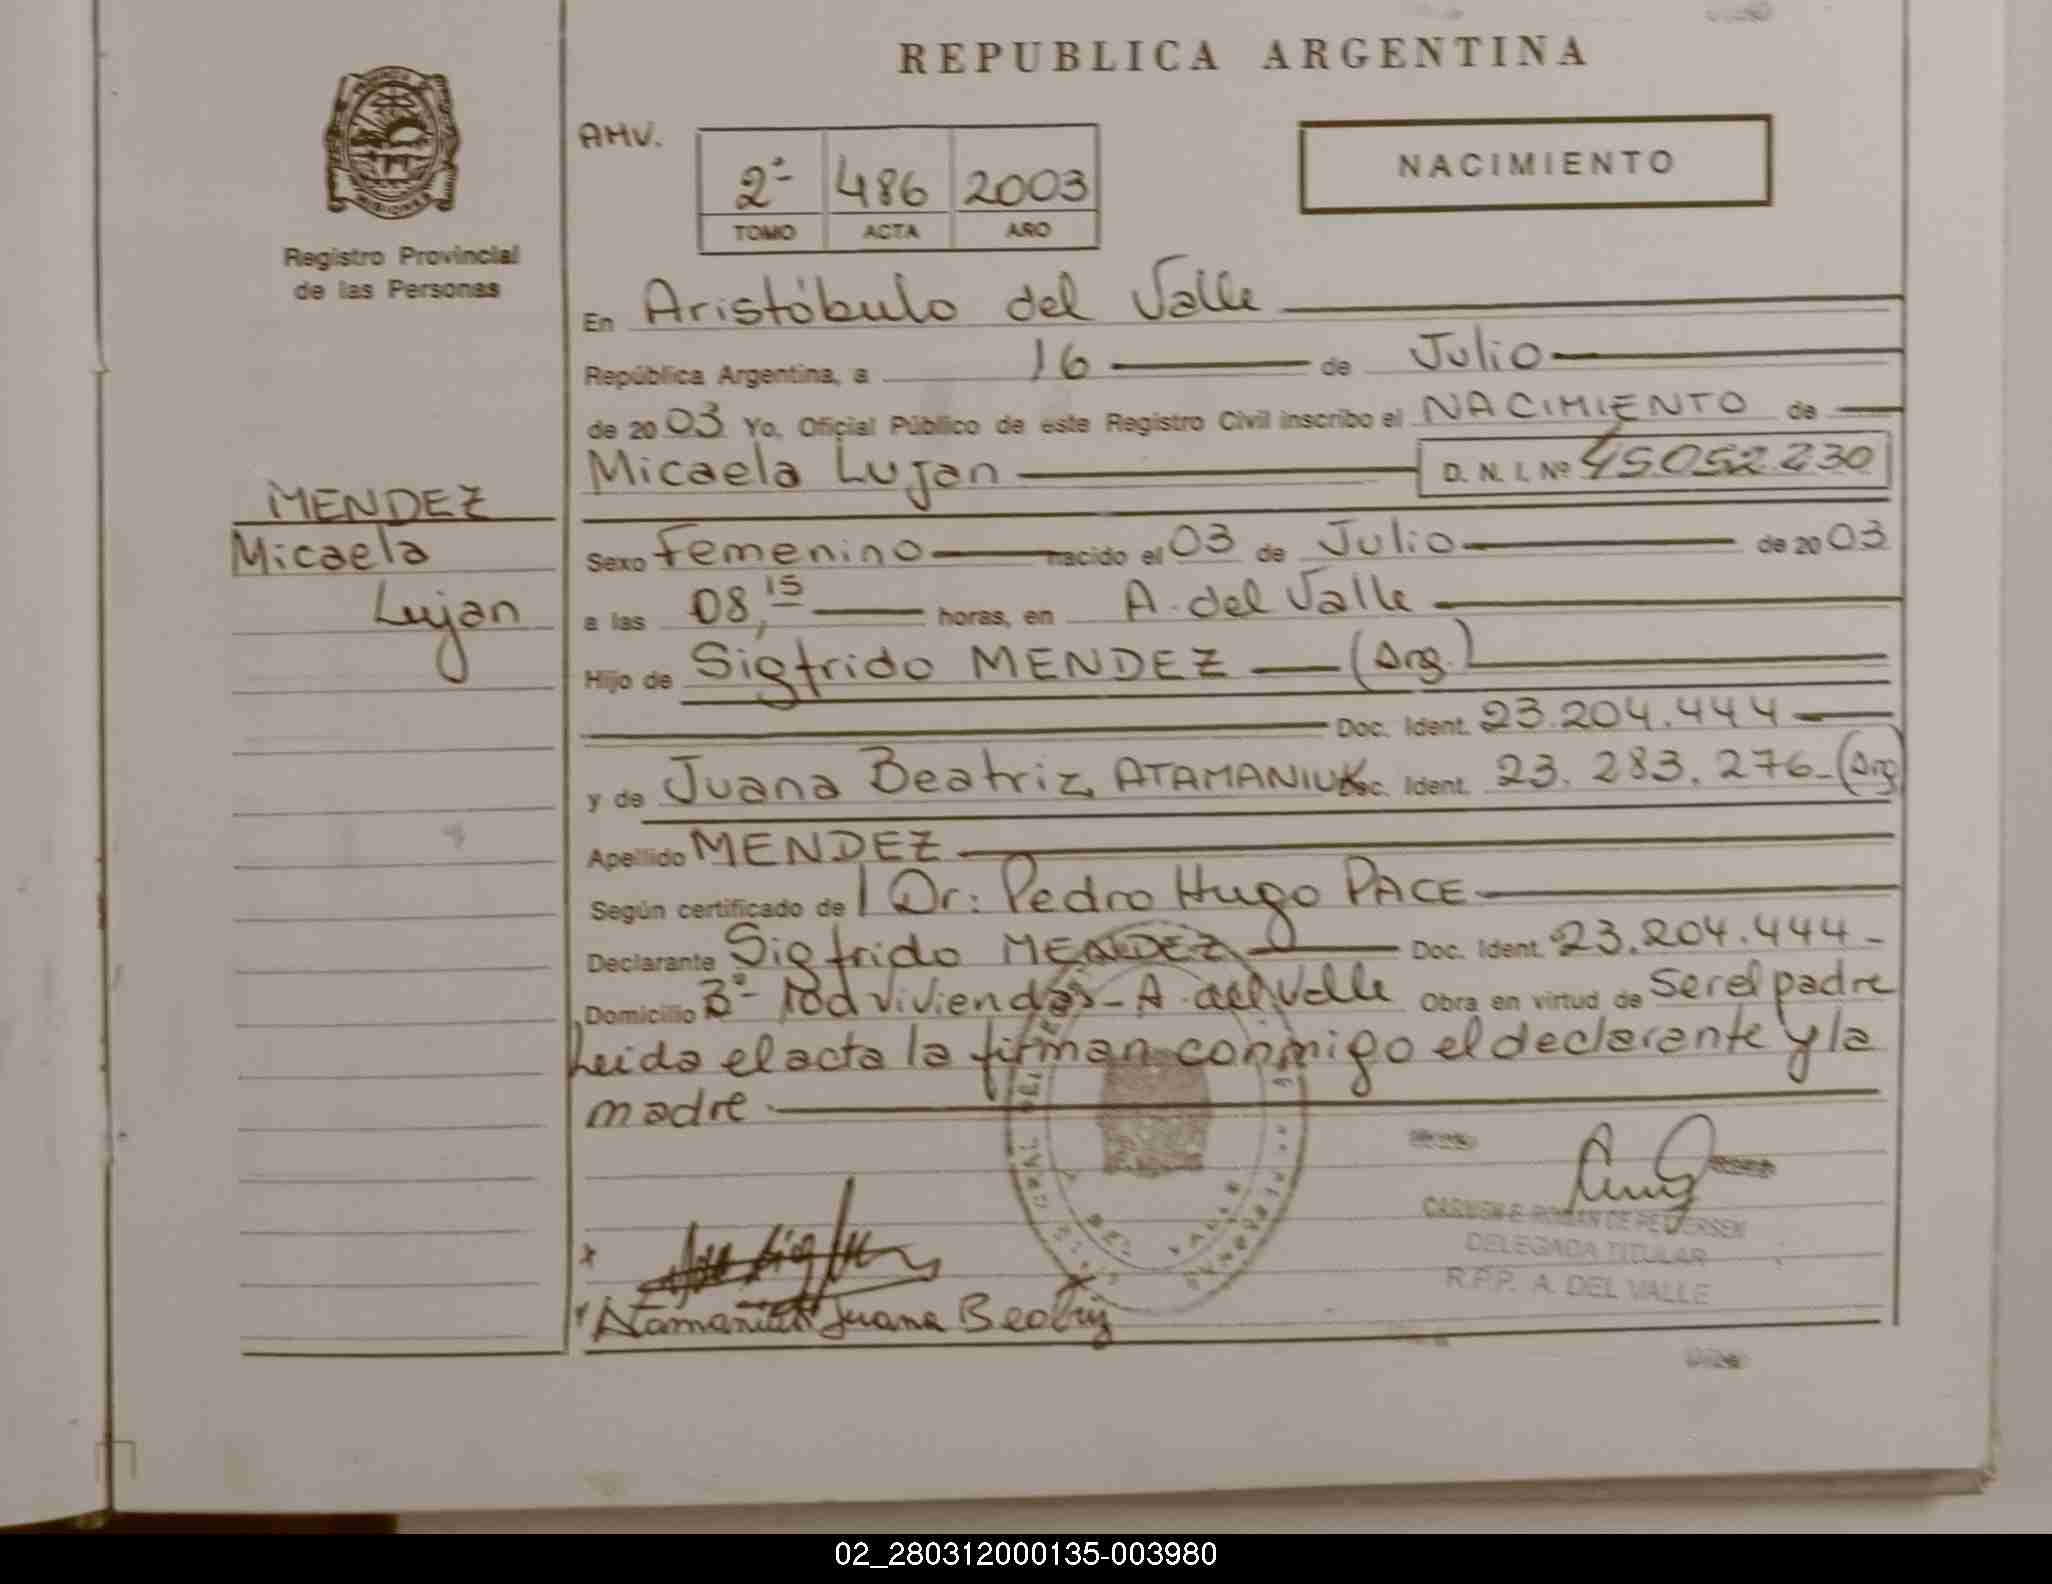 REPUBLICA ARGENTINA
AMV.
2ª 486 2003
TOMO ACTA AÑO
NACIMIENTO
MISIONES
Registro Provincial
de las Personas
MENDEZ
Micaela
Lujan
En Aristóbulo del Valle
República Argentina, a 16 de Julio
de 2003 Yo, Oficial Público de este Registro Civil inscribo el NACIMIENTO de
Micaela Lujan D. N. I. Nº 45.052.230
Sexo Femenino nacido el 03 de Julio de 2003
a las 08,15 horas, en A. del Valle
Hijo de Sigfrido MENDEZ (Arg.)
Doc. Ident. 23.204.444
y de Juana Beatriz ATAMANIUK Doc. Ident. 23.283.276 (Arg
Apellido MENDEZ
Según certificado de Dr: Pedro Hugo PACE
Declarante Sigfrido MENDEZ Doc. Ident. 23.204.444
Domicilio viviendas - A. del Valle Obra en virtud de ser el padre
Leida el acta la firman conmigo el declarante y la
madre.
CARMEN E. ROMAN DE PEDERSEN
DELEGADA TITULAR
R.P.P. A. DEL VALLE
Atamaniuk Juana Beatriz
02_280312000135-003980